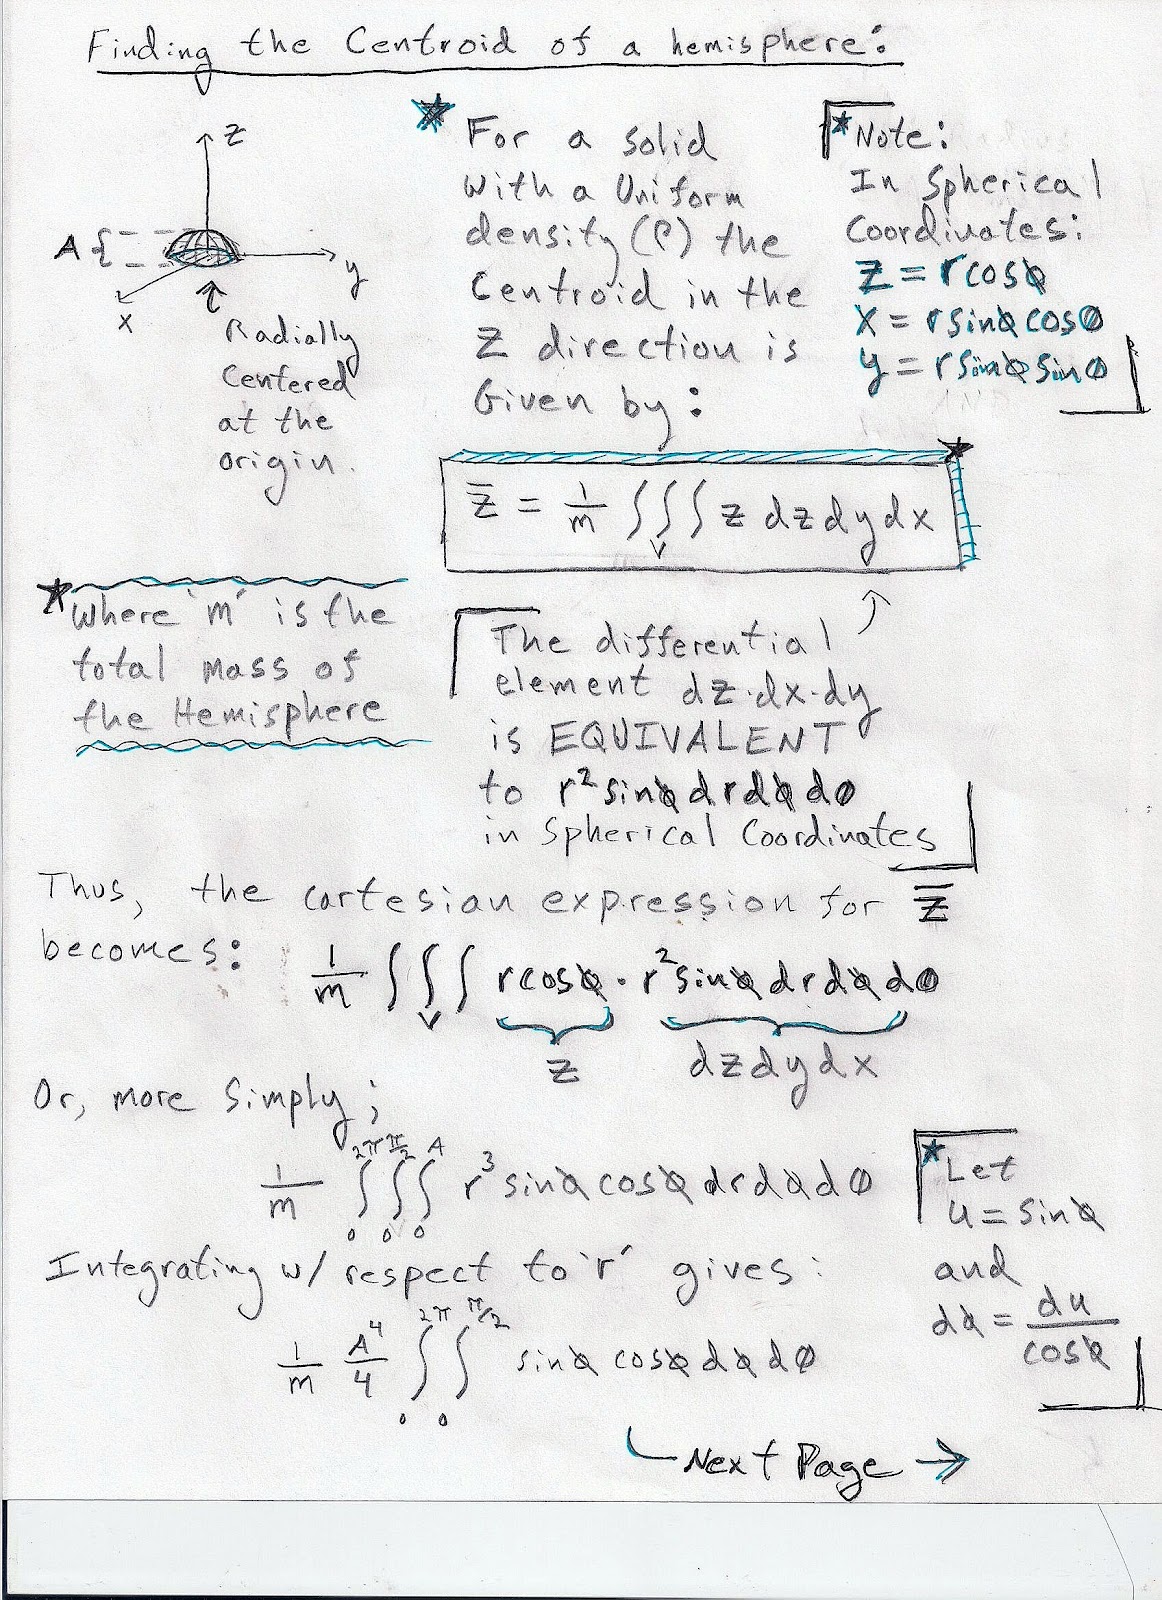 Finding the Centroid of a hemisphere:
z
A {
y
x
Radially
Centered
at the
origin.
★ For a solid
with a Uniform
density (ρ) the
Centroid in the
Z direction is
Given by:
★ Note:
In Spherical
Coordinates:
Z = r cosϕ
X = r sinϕ cosθ
y = r sinϕ sinθ
z̅ = 1/m ∫∫∫_V z dz dy dx
★ Where 'm' is the
total mass of
the Hemisphere
The differential
element dz·dx·dy
is EQUIVALENT
to r² sinϕ dr dϕ dθ
in Spherical Coordinates
Thus, the cartesian expression for z̅
becomes: 1/m ∫∫∫_V r cosϕ · r² sinϕ dr dϕ dθ
z dz dy dx
Or, more Simply;
1/m ∫₀^2π ∫₀^π/2 ∫₀^A r³ sinϕ cosϕ dr dϕ dθ
Integrating w/ respect to 'r' gives:
1/m A⁴/4 ∫₀^2π ∫₀^π/2 sinϕ cosϕ dϕ dθ
★ Let
u = sinϕ
and
dϕ = du/cosϕ
Next Page →